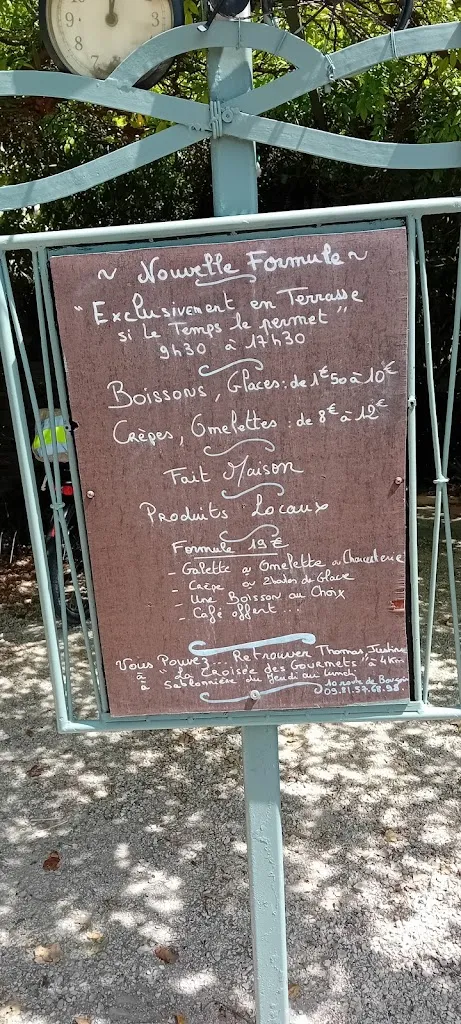 10 12 1
9 2
8 3
7 4
6 5
~ Nouvelle Formule ~
"Exclusivement en Terrasse
si Le Temps le permet"
9h30 à 17h30
Boissons, Glaces : de 1€50 à 10€
Crèpes, Omelettes : de 8€ à 12€
Fait Maison
Produits Locaux
Formule 19€
- Galette ou Omelette ou Charcuterie
- Crèpe ou 2 boules de Glace
- Une Boisson au Choix
- Café offert...
Vous Pouvez... Retrouver Thomas Justine
à "La Croisée des Gourmets" à 4Km
à Sablonnière du Jeudi au lundi
10 route de
09.81.57.68.98.